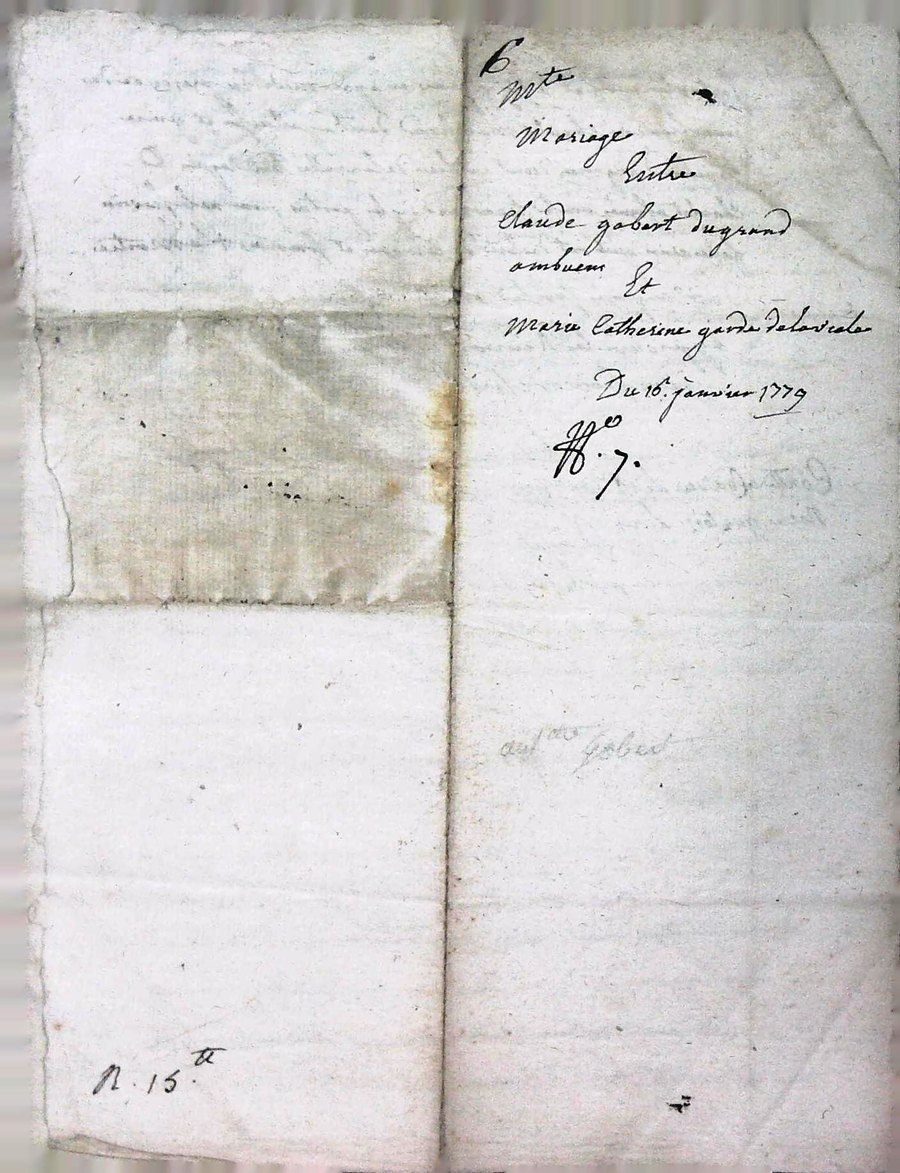 6
Mte
Mariage
Entre
Claude gobert dugrand
ambuens
Et
Marie Catherine garde delaviale
Du 16e. janvier 1779
No. 7.
gobert
R. 15.tt